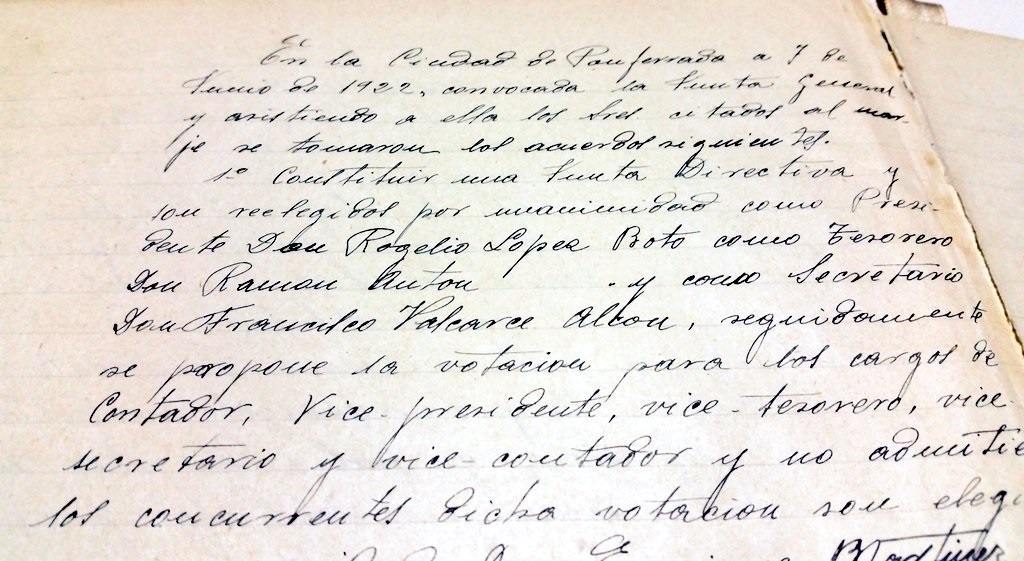 En la Ciudad de Ponferrada a 7 de
Junio de 1922, convocada la Junta General
y asistiendo a ella los Sres citados al mar-
je se tomaron los acuerdos siguientes.
1º Constituir una Junta Directiva y
son reelegidos por unanimidad como Presi-
dente Don Rogelio Lopez Boto como Tesorero
Don Ramon Anton . y como Secretario
Don Francisco Valcarce Alcon, seguidamente
se propone la votacion para los cargos de
Contador, Vice-presidente, vice-tesorero, vice-
secretario y vice-contador y no admitie
los concurrentes dicha votacion son eleg